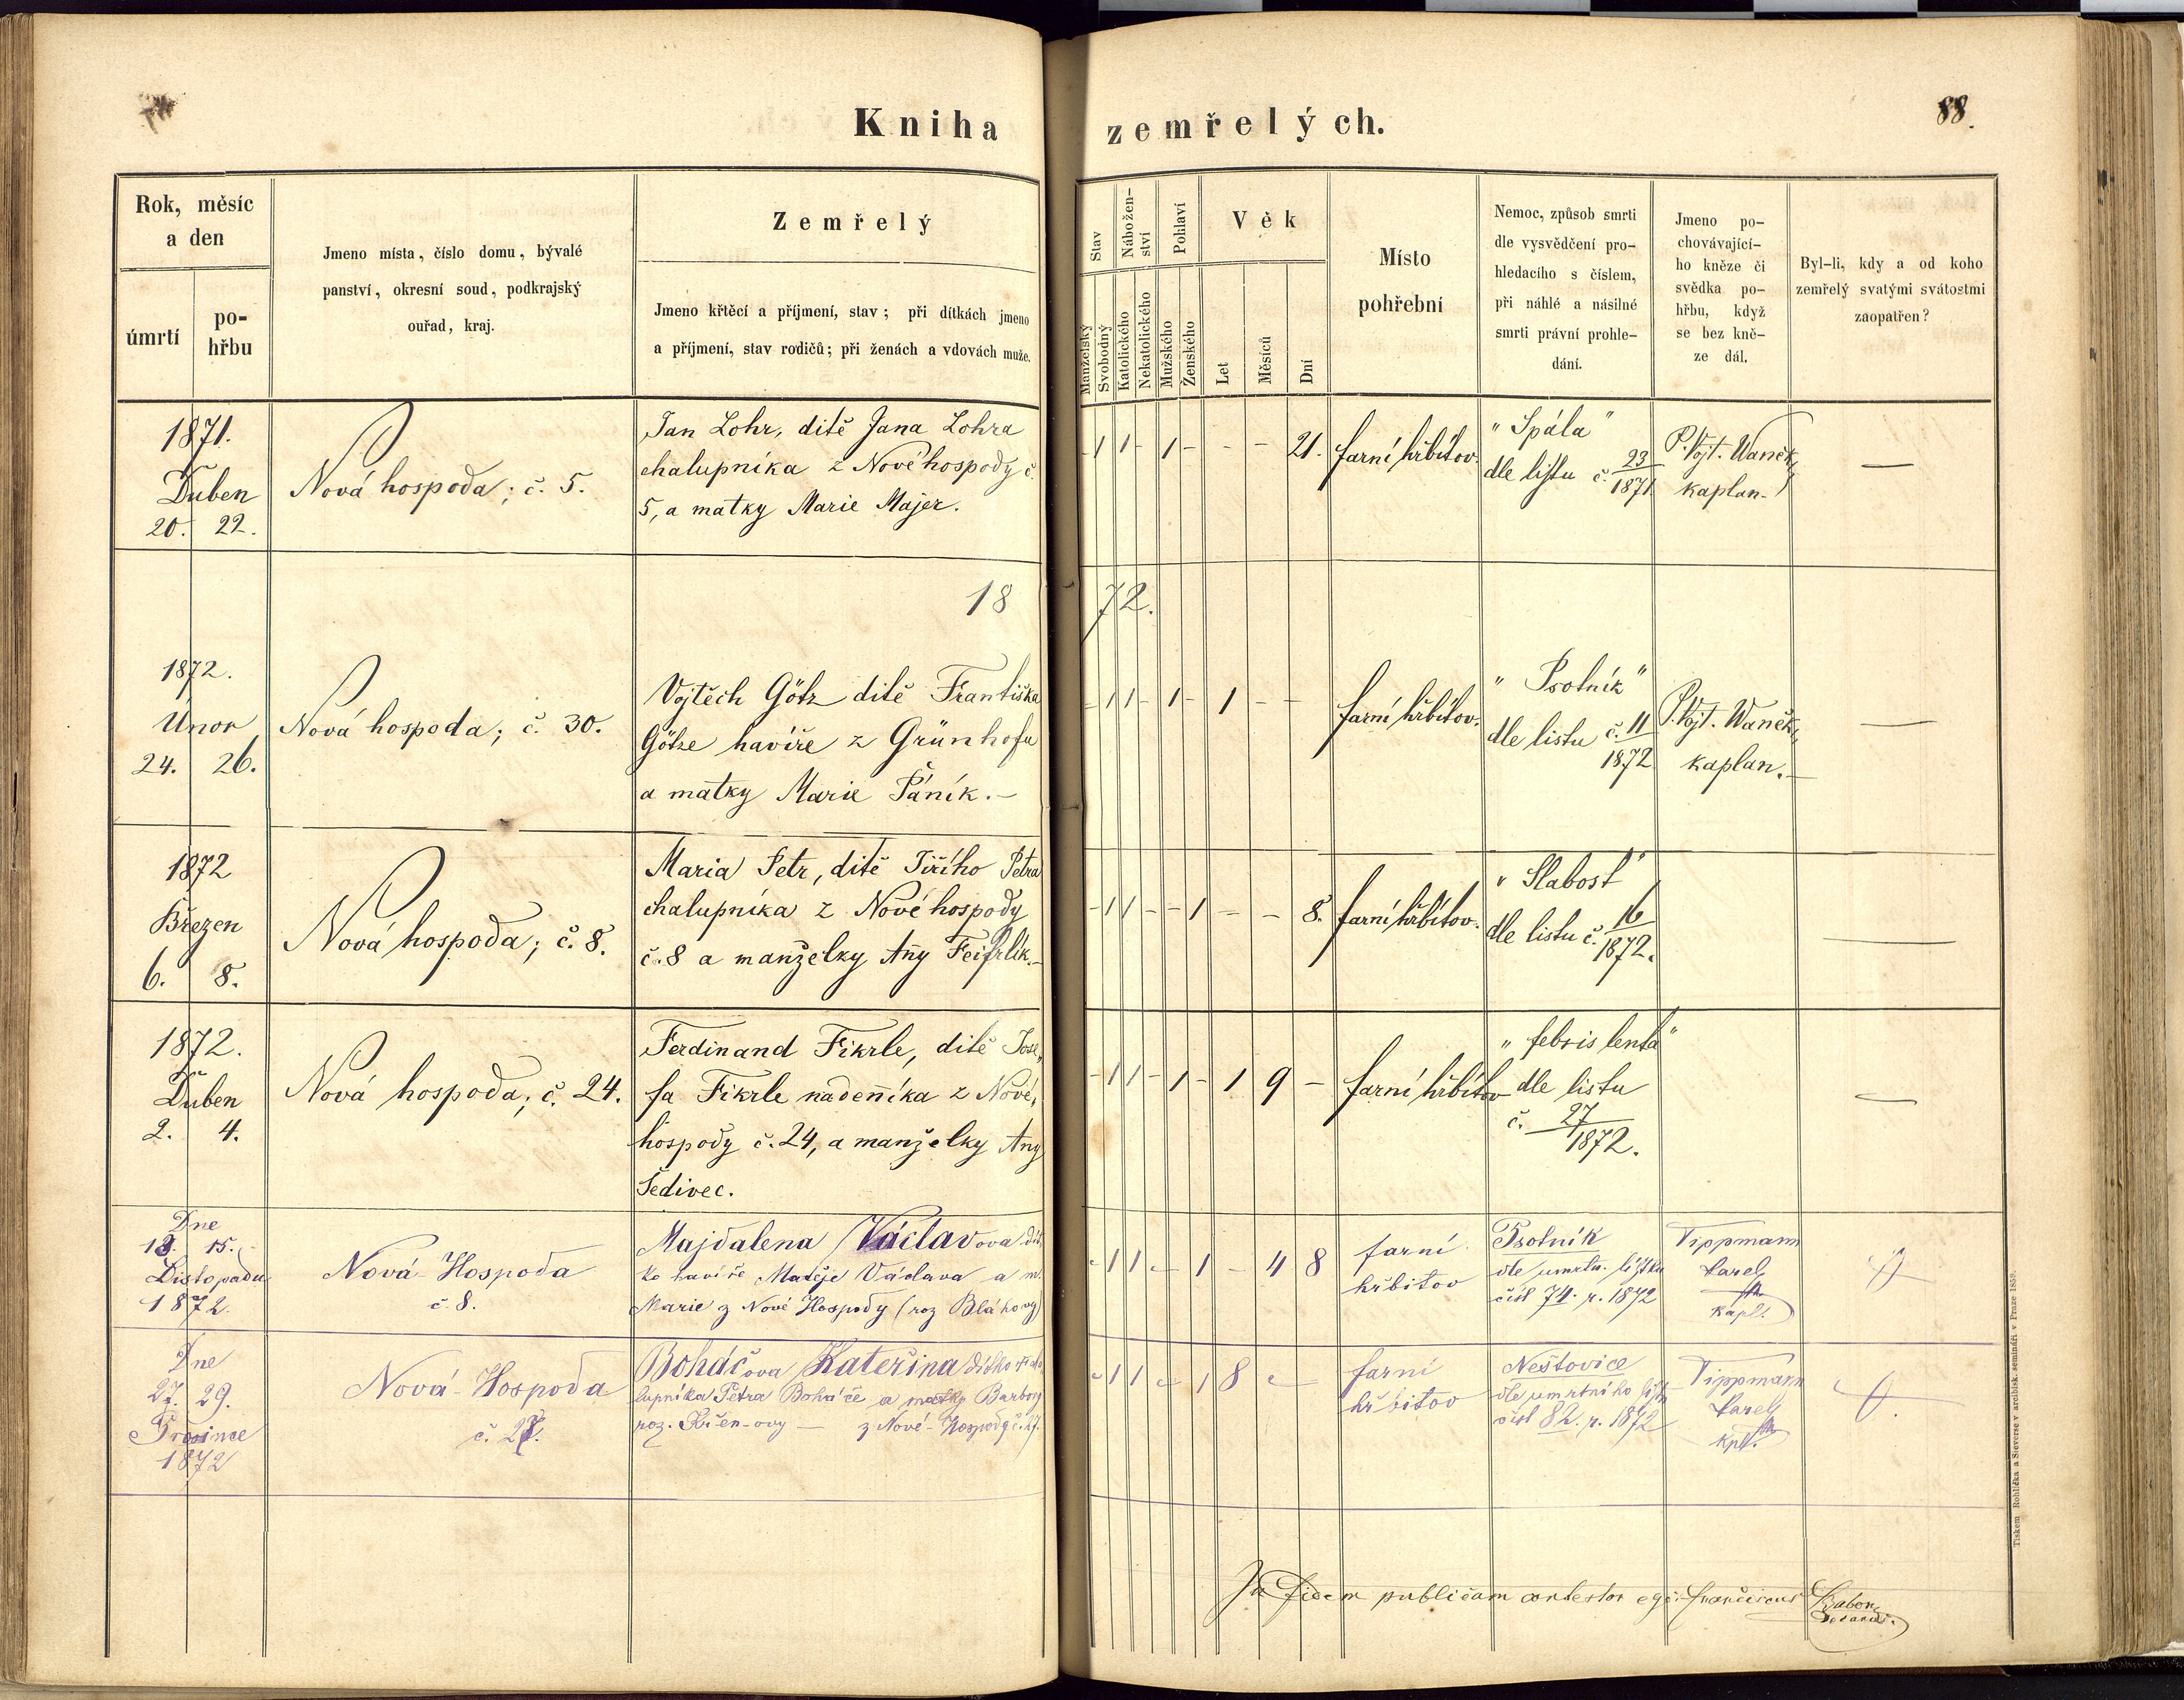 Kniha zemřelých.
88.
Rok, měsíc
a den
úmrtí
po-
hřbu
Jmeno místa, číslo domu, bývalé
panství, okresní soud, podkrajský
ouřad, kraj.
Zemřelý
Jmeno křtěcí a příjmení, stav; při dítkách jmeno
a příjmení, stav rodičů; při ženách a vdovách muže.
Stav
Manželský
Svobodný
Nábožen-
ství
Katolického
Nekatolického
Pohlaví
Mužského
Ženského
Věk
Let
Měsíců
Dní
Místo
pohřební
Nemoc, způsob smrti
dle vysvědčení pro-
hledacího s číslem,
při náhlé a násilné
smrti právní prohle-
dání.
Jmeno po-
chovávající-
ho kněze či
svědka po-
hřbu, když
se bez kně-
ze dál.
Byl-li, kdy a od koho
zemřelý svatými svátostmi
zaopatřen?
1871.
Duben
20. 22.
Nová hospoda; č. 5.
Jan Lohr, dítě Jana Lohra
chalupníka z Nové hospody č.
5, a matky Marie Majer.
- 1 1 - 1 - - - 21.
farní hřbitov.
"Spála"
dle listu č. 23/1871
P. Vojt. Waněk,
kaplan.
—
1872.
1872.
Únor
24. 26.
Nová hospoda; č. 30.
Vojtěch Götz dítě Františka
Götze havíře z Grünhofu
a matky Marie Páník.-
- 1 1 - 1 - 1 - -
farní hřbitov.
"Psotník"
dle listu č. 11/1872
P. Vojt. Waněk,
kaplan.-
—
1872
Březen
6. 8.
Nová hospoda; č. 8.
Maria Petr, dítě Jiřího Petra
chalupníka z Nové hospody
č. 8 a manželky Any Feifrlík.-
- 1 1 - - 1 - - 8.
farní hřbitov.
"Slabost"
dle listu č. 16/1872.
—
1872.
Duben
2. 4.
Nová hospoda; č. 24.
Ferdinand Fikrle, dítě Jose„
fa Fikrle nadenníka z Nové„
hospody č. 24, a manželky Any
Šedivec.
- 1 1 - 1 - 1 9 -
farní hřbitov
"febris lenta"
dle listu
č. 27/1872.
—
Dne
13. 15.
Listopadu
1872.
Nová-Hospoda
č. 8.
Majdalena Václavova dít„
ko havíře Matěje Václava a m.
Marie z Nové Hospody (roz Bláhovy)
- 1 1 - - 1 - 4 8
farní
hřbitov
Psotník
dle umrtn. lístku
čísl 74. r. 1872
Tippmann
Karel
kapl.
Dne
27. 29.
Prosince
1872
Nová-Hospoda
č. 27.
Boháčova Kateřina dítko cha„
lupníka Petra Boháče a matky Barbory
roz. Křen-ovy — z Nové-Hospody č. 27.
- 1 1 - - 1 8 -
farní
hřbitov
Neštovice
dle umrtního listu
čísl 82. r. 1872
Tippmann
Karel
kpl.
In fidem publicam contestor ego Franciscus Babor
Decanus.
Tiskem Rohlíčka a Sieverse v arcibisk. semináři v Praze 1859.